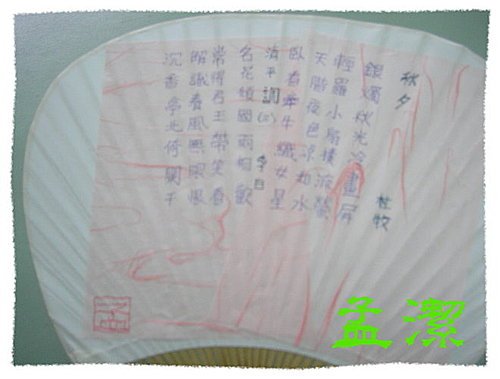 秋夕
杜牧
銀燭秋光冷畫屏
輕羅小扇撲流螢
天階夜色涼如水
臥看牽牛織女星
清平調
李白
名花傾國兩相歡
常得君王帶笑看
解識春風無限恨
沉香亭北倚闌干
孟潔